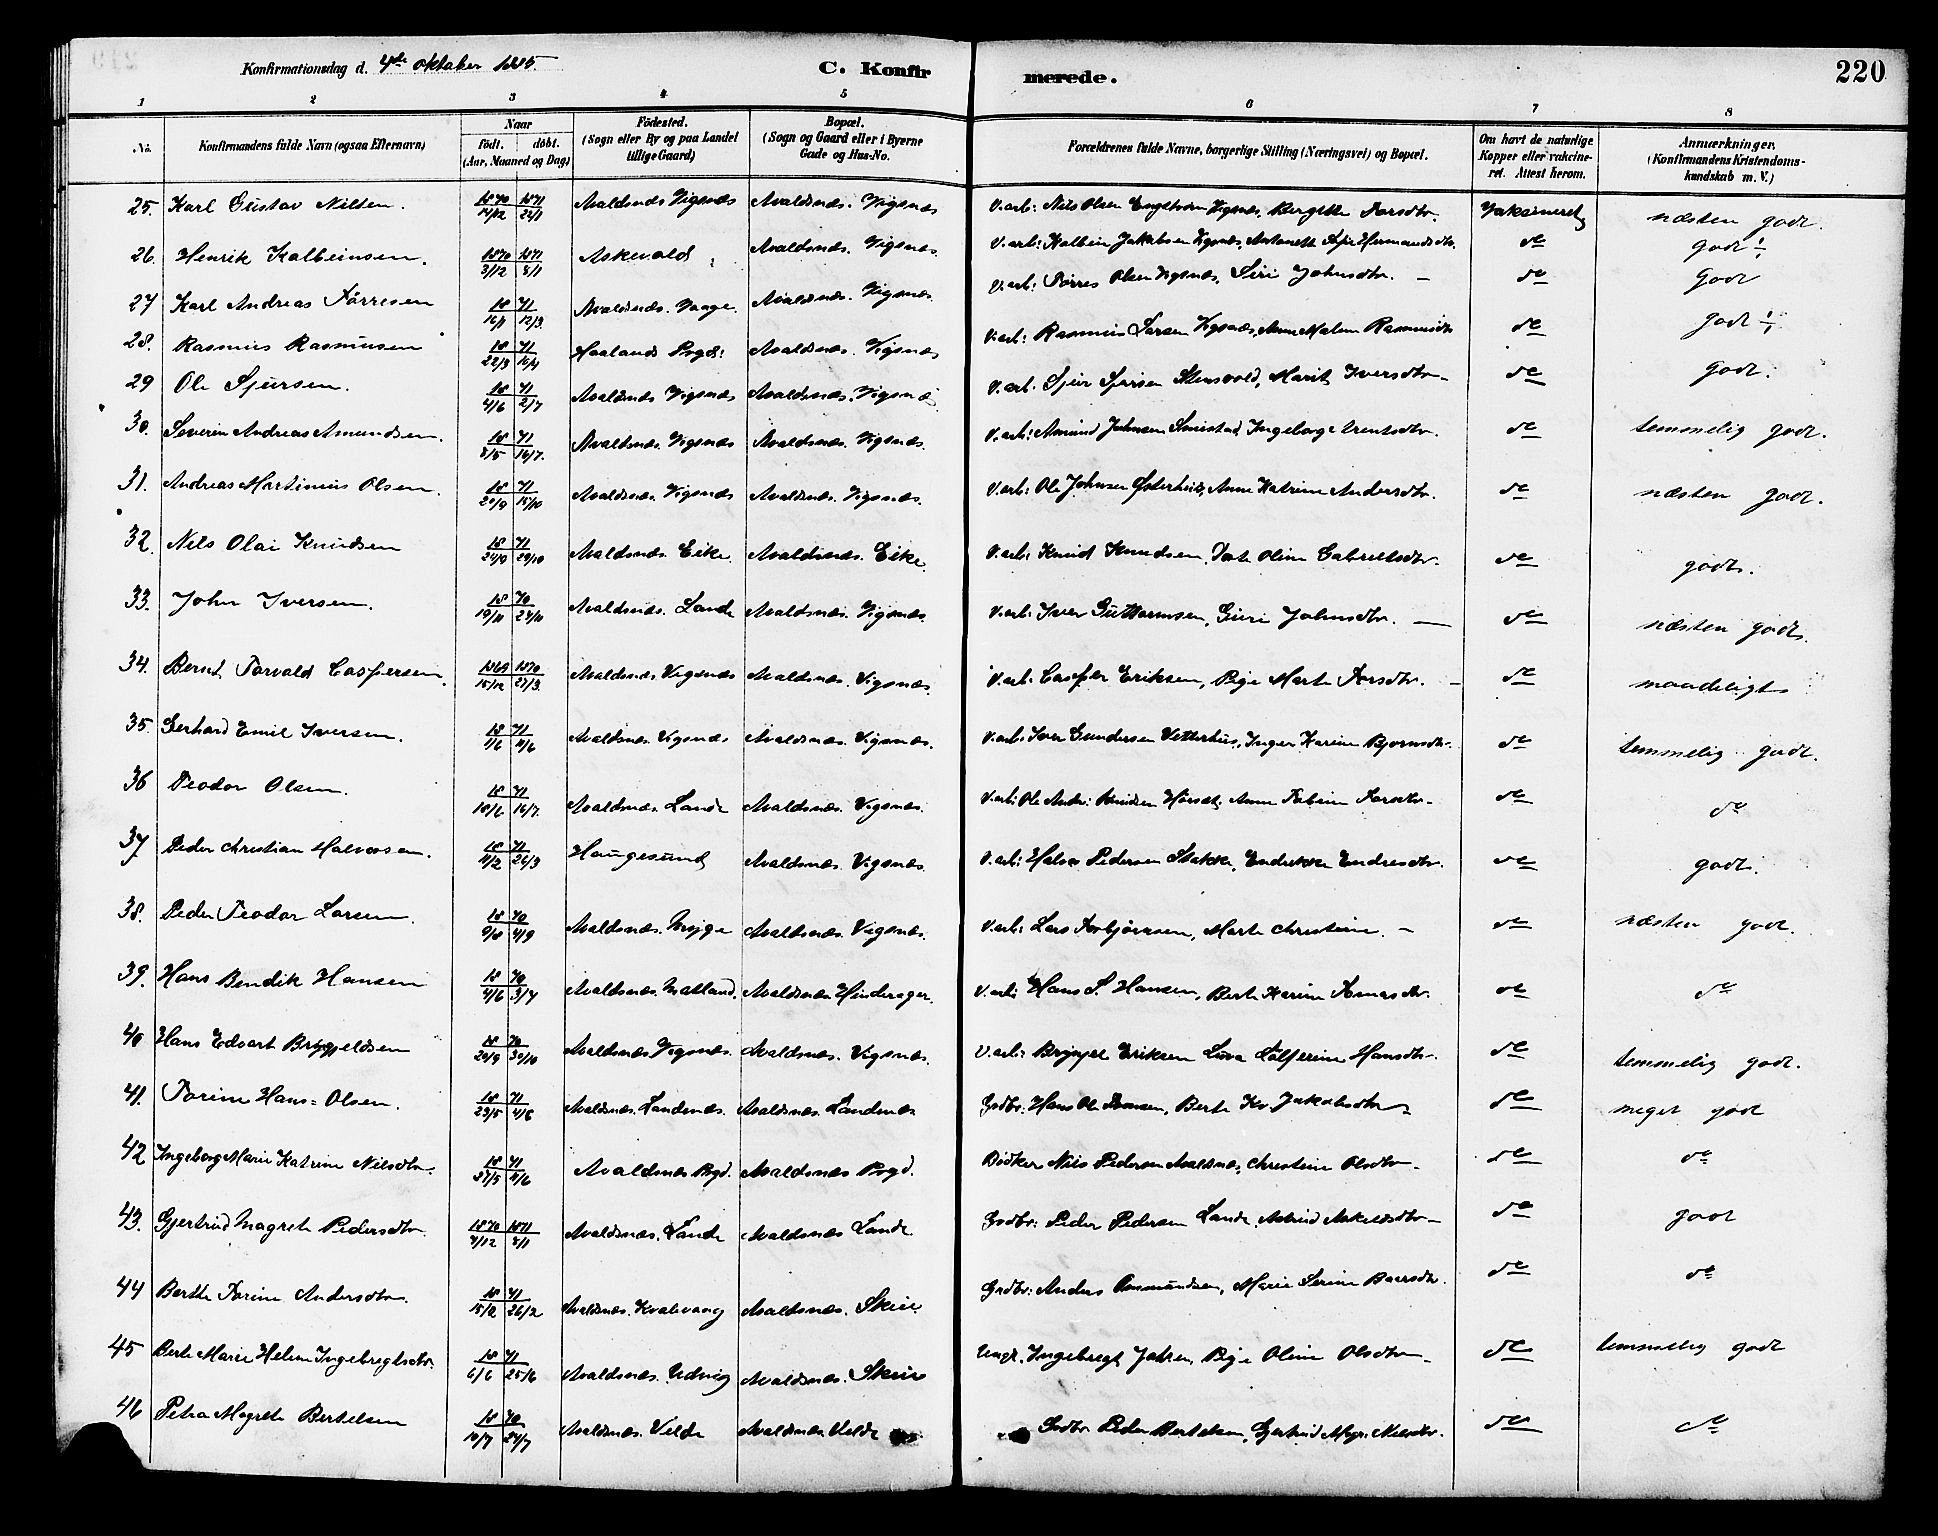 Konfirmationsdag d. 4de oktober 1885. C. Konfirmerede. 220
1 2 3 4 5 6 7 8
No. Konfirmandens fulde Navn (ogsaa Efternavn) Naar født. døbt. (Aar, Maaned og Dag) Fødested. (Sogn eller By og paa Landet tillige Gaard) Bopæl. (Sogn og Gaard eller i Byerne Gade og Hus-No. Forældrenes fulde Navne, borgerlige Stilling (Næringsvei) og Bopæl. Om havt de naturlige Kopper eller vakcineret. Attest herom. Anmærkninger. (Konfirmandens Kristendomskundskab m. V.)
25. Karl Gustav Nilsen. 1870 14/12 1871 22/1 Avaldsnæs Vigsnæs Avaldsnæs. Vigsnæs V. arb: Nils Olsen Engstrøm Vigsnæs, Bergitte Larsdtr. Vakcineret næsten godt.
26. Henrik Kalbeinsen. 1870 3/12 1871 8/1 Askevold Avaldsnæs. Vigsnæs. V. arb: Kalbein Jakobsen Vigsnæs, Antonette Hermansdtr. do godt
27 Karl Andreas Tørresen 1871 16/1 12/3. Avaldsnæs. Vaage. Avaldsnæs. Vigsnæs. V. arb: Tørres Olsen Vigsnæs, Siri Johnsdtr. — do Godt
28. Rasmus Rasmussen 1871 22/3 15/4 Haalands Prgd: Avaldsnæs. Vigsnæs V. arb: Rasmus Larsen Vigsnæs, Anne Malene Rasmusdtr do godt
29 Ole Sjursen. 1871 4/6 2/7 Avaldsnæs Vigsnæs Avaldsnæs. Vigsnæs. V. arb: Sjur Sjursen Stensvold, Marit Iversdtr— do godt.
30. Severin Andreas Amundsen. 1871 8/5 16/7. Avaldsnæs. Vigsnæs Avaldsnæs. Vigsnæs. V. arb: Amund Johnsen, Ingeborg Arentsdtr. do temmelig godt.
31. Andreas Martinius Olsen. 1871 20/9 15/10 Avaldsnæs. Vigsnæs Avaldsnæs. Vigsnæs. V. arb: Ole Johnsen Østerhus, Anne Katrine Andersdtr. do næsten godt.
32. Nils Olai Knudsen 1871 24/9 29/10 Avaldsnæs. Eike. Avaldsnæs. Eike. V. arb: Knud Knudsen, Oline Gabrielsdtr. do godt.
33. John Iversen. 1870 19/10 24/10 Avaldsnæs. Lande Avaldsnæs. Vigsnæs. V. arb: Iver Guttormsen, Guri Johnsdtr. — do næsten godt.
34. Bernt Torvald Caspersen. 1869 15/12 1870 27/3. Avaldsnæs. Vigsnæs Avaldsnæs. Vigsnæs. V. arb: Casper Eriksen, Pige Marte Larsdtr. — do maadeligt
35. Gerhard Emil Iversen. 1871 1/6 11/6 Avaldsnæs. Vigsnæs Avaldsnæs. Vigsnæs. V. arb: Iver Gundersen Vetterhus, Inger Karine Bjørnsdtr. do temmelig godt.
36 Teodor Olsen. 1871 18/6 16/7. Avaldsnæs. Lande Avaldsnæs. Vigsnæs. V. arb: Ole Andr: Knudsen, Anne Larsdtr— do do
37. Peder Christian Halvorsen. 1871 11/2 26/3 Haugesund Avaldsnæs. Vigsnæs. V. arb: Halvor Pedersen Stakke, Endrikke Endresdtr. do godt.
38. Peder Teodor Larsen. 1870 9/8 4/9 Avaldsnæs. Myge Avaldsnæs. Vigsnæs. V. arb: Lars Torbjørnsen, Marte Christine. — do næsten godt.
39. Hans Bendik Hansen 1870 4/6 3/7 Avaldsnæs. Matland. Avaldsnæs. Hinderager. V. arb: Hans S. Hansen, Berte Karine Tomasdtr. do do
40 Hans Edvart Brynjeldsen 1870 20/9 30/10 Avaldsnæs. Vigsnæs. Avaldsnæs. Vigsnæs. V. arb: Brynjel Eriksen, Hansdtr. do temmelig godt.
41. Torine Hans=Olsen. 1871 23/5 4/6 Avaldsnæs. Landenæs. Avaldsnæs. Landenæs Grdbr: Hans Ole Tomsen, Berte Kr. Jakobsdtr— do meget godt
42 Ingeborg Marie Katrine Nilsdtr. 1871 27/5 11/6 Avaldsnæs Prgd. Avaldsnæs Prgd. Bødker Nils Pedersen Avaldsnæs, Christine Olsdtr— do do
43. Gjertrud Magrete Pedersdtr. 1870 9/12 1871 8/1 Avaldsnæs. Lande Avaldsnæs Lande Grdbr: Peder Pedersen Lande, Astrid Askeldsdtr— do godt
44 Berthe Torine Andersdtr. 1871 15/2 26/2 Avaldsnæs. Kvalevaag Avaldsnæs. Skeie Grdbr: Anders Osmundsen, Marie Serine Baarsdtr. do do
45 Berte Marie Helene Ingebregtsdtr. 1871 6/6 25/6 Avaldsnæs. Udvig Avaldsnæs. Skeie Ungk. Ingebregt Johsen, Pige Oline Olsdtr— do temmelig godt
46 Petra Magrete Bertelsen 1870 10/7 24/7 Avaldsnæs. Velde Avaldsnæs. Velde Grdbr. Peder Bertelsen, Gjertrud Magr. Nilsdtr. do do